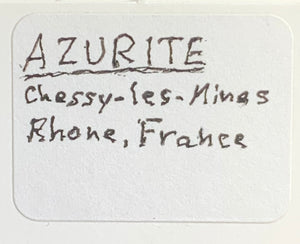 AZURITE
Chessy-les-Mines
Rhone, France